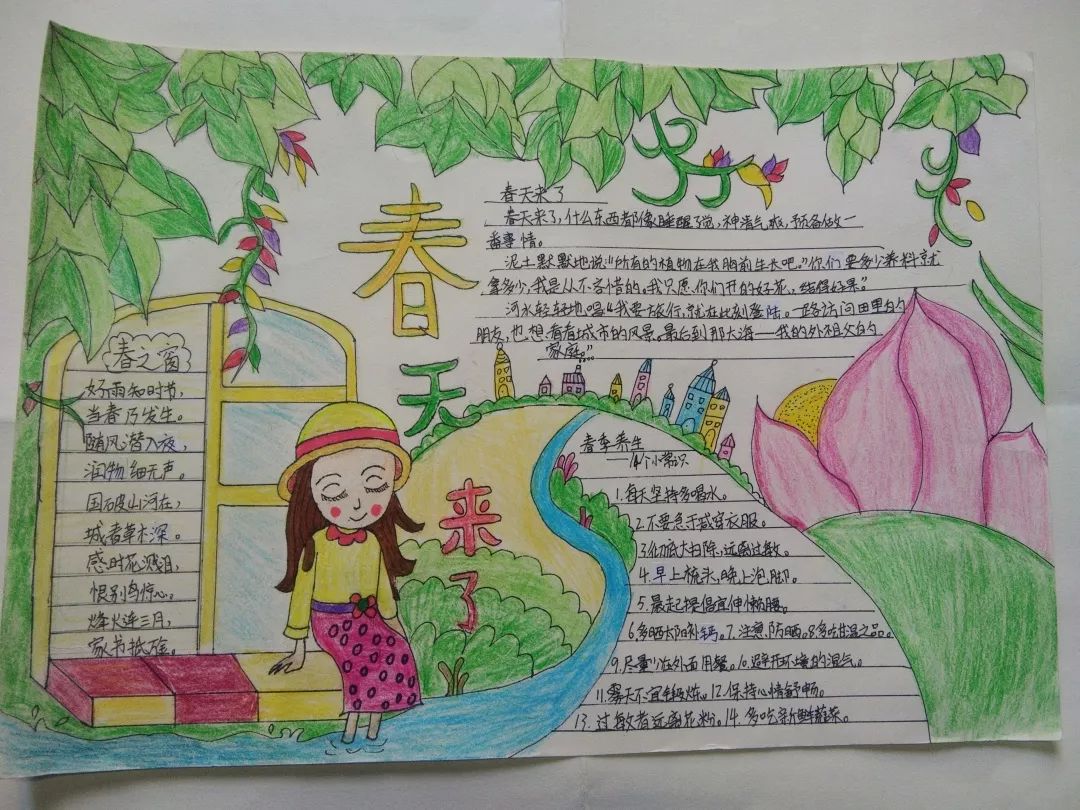 春天来了
春之窗
好雨知时节,
当春乃发生。
随风潜入夜,
润物细无声。
国破山河在,
城春草木深。
感时花溅泪,
恨别鸟惊心。
烽火连三月,
家书抵
春天来了
春天来了,什么东西都像睡醒了觉,神清气爽,预备做一
番事情。
泥土默默地说:“所有的植物在我胸前生长吧。”你们要多少养料就
拿多少,我是从不吝惜的,我只愿你们开的好花,结得好果。”
河水轻轻地唱“我要旅行,就在此刻登陆。一路访问田里的
朋友,也想看看城市的风景。最后到那大海——我的外祖父的
家庭。”……
春季养生
——14个小常识
1.每天坚持多喝水。
2.不要急于减穿衣服。
3.彻底大扫除,远离过敏。
4.早上梳头,晚上泡脚。
5.晨起提倡宜伸懒腰。
6多晒太阳补钙。7.注意防晒。8多吃甘温之品。
9.尽量少在外面用餐。10.避开环境的湿气。
11.雾天不宜锻炼。12.保持心情舒畅。
13.过敏者远离花粉。14.多吃新鲜蔬菜。